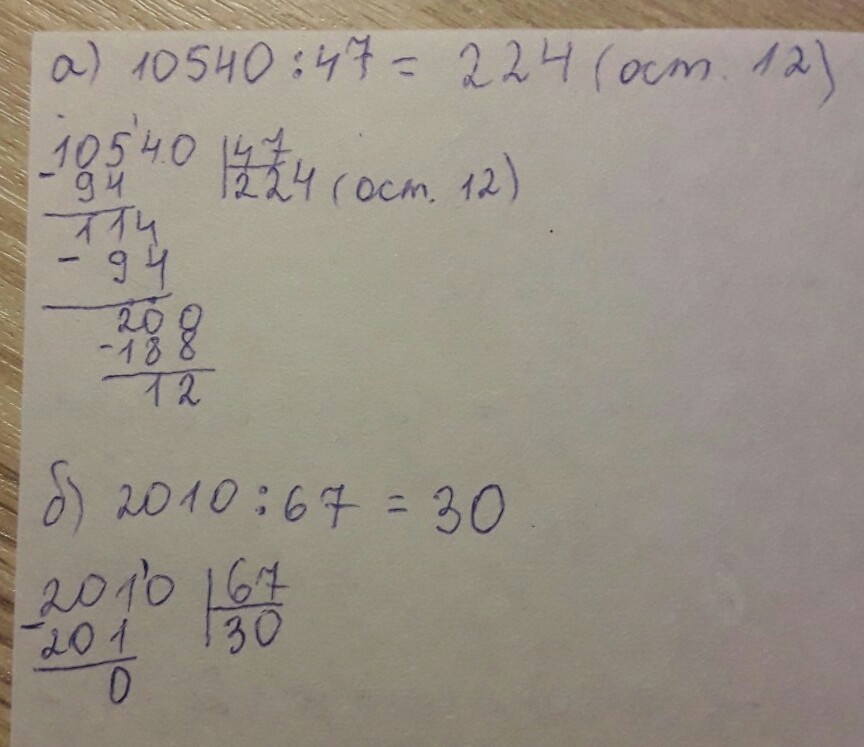 а) 10540 : 47 = 224 (ост. 12)
10540 47
- 94 224 (ост. 12)
114
- 94
200
- 188
12
б) 2010 : 67 = 30
2010 67
- 201 30
0